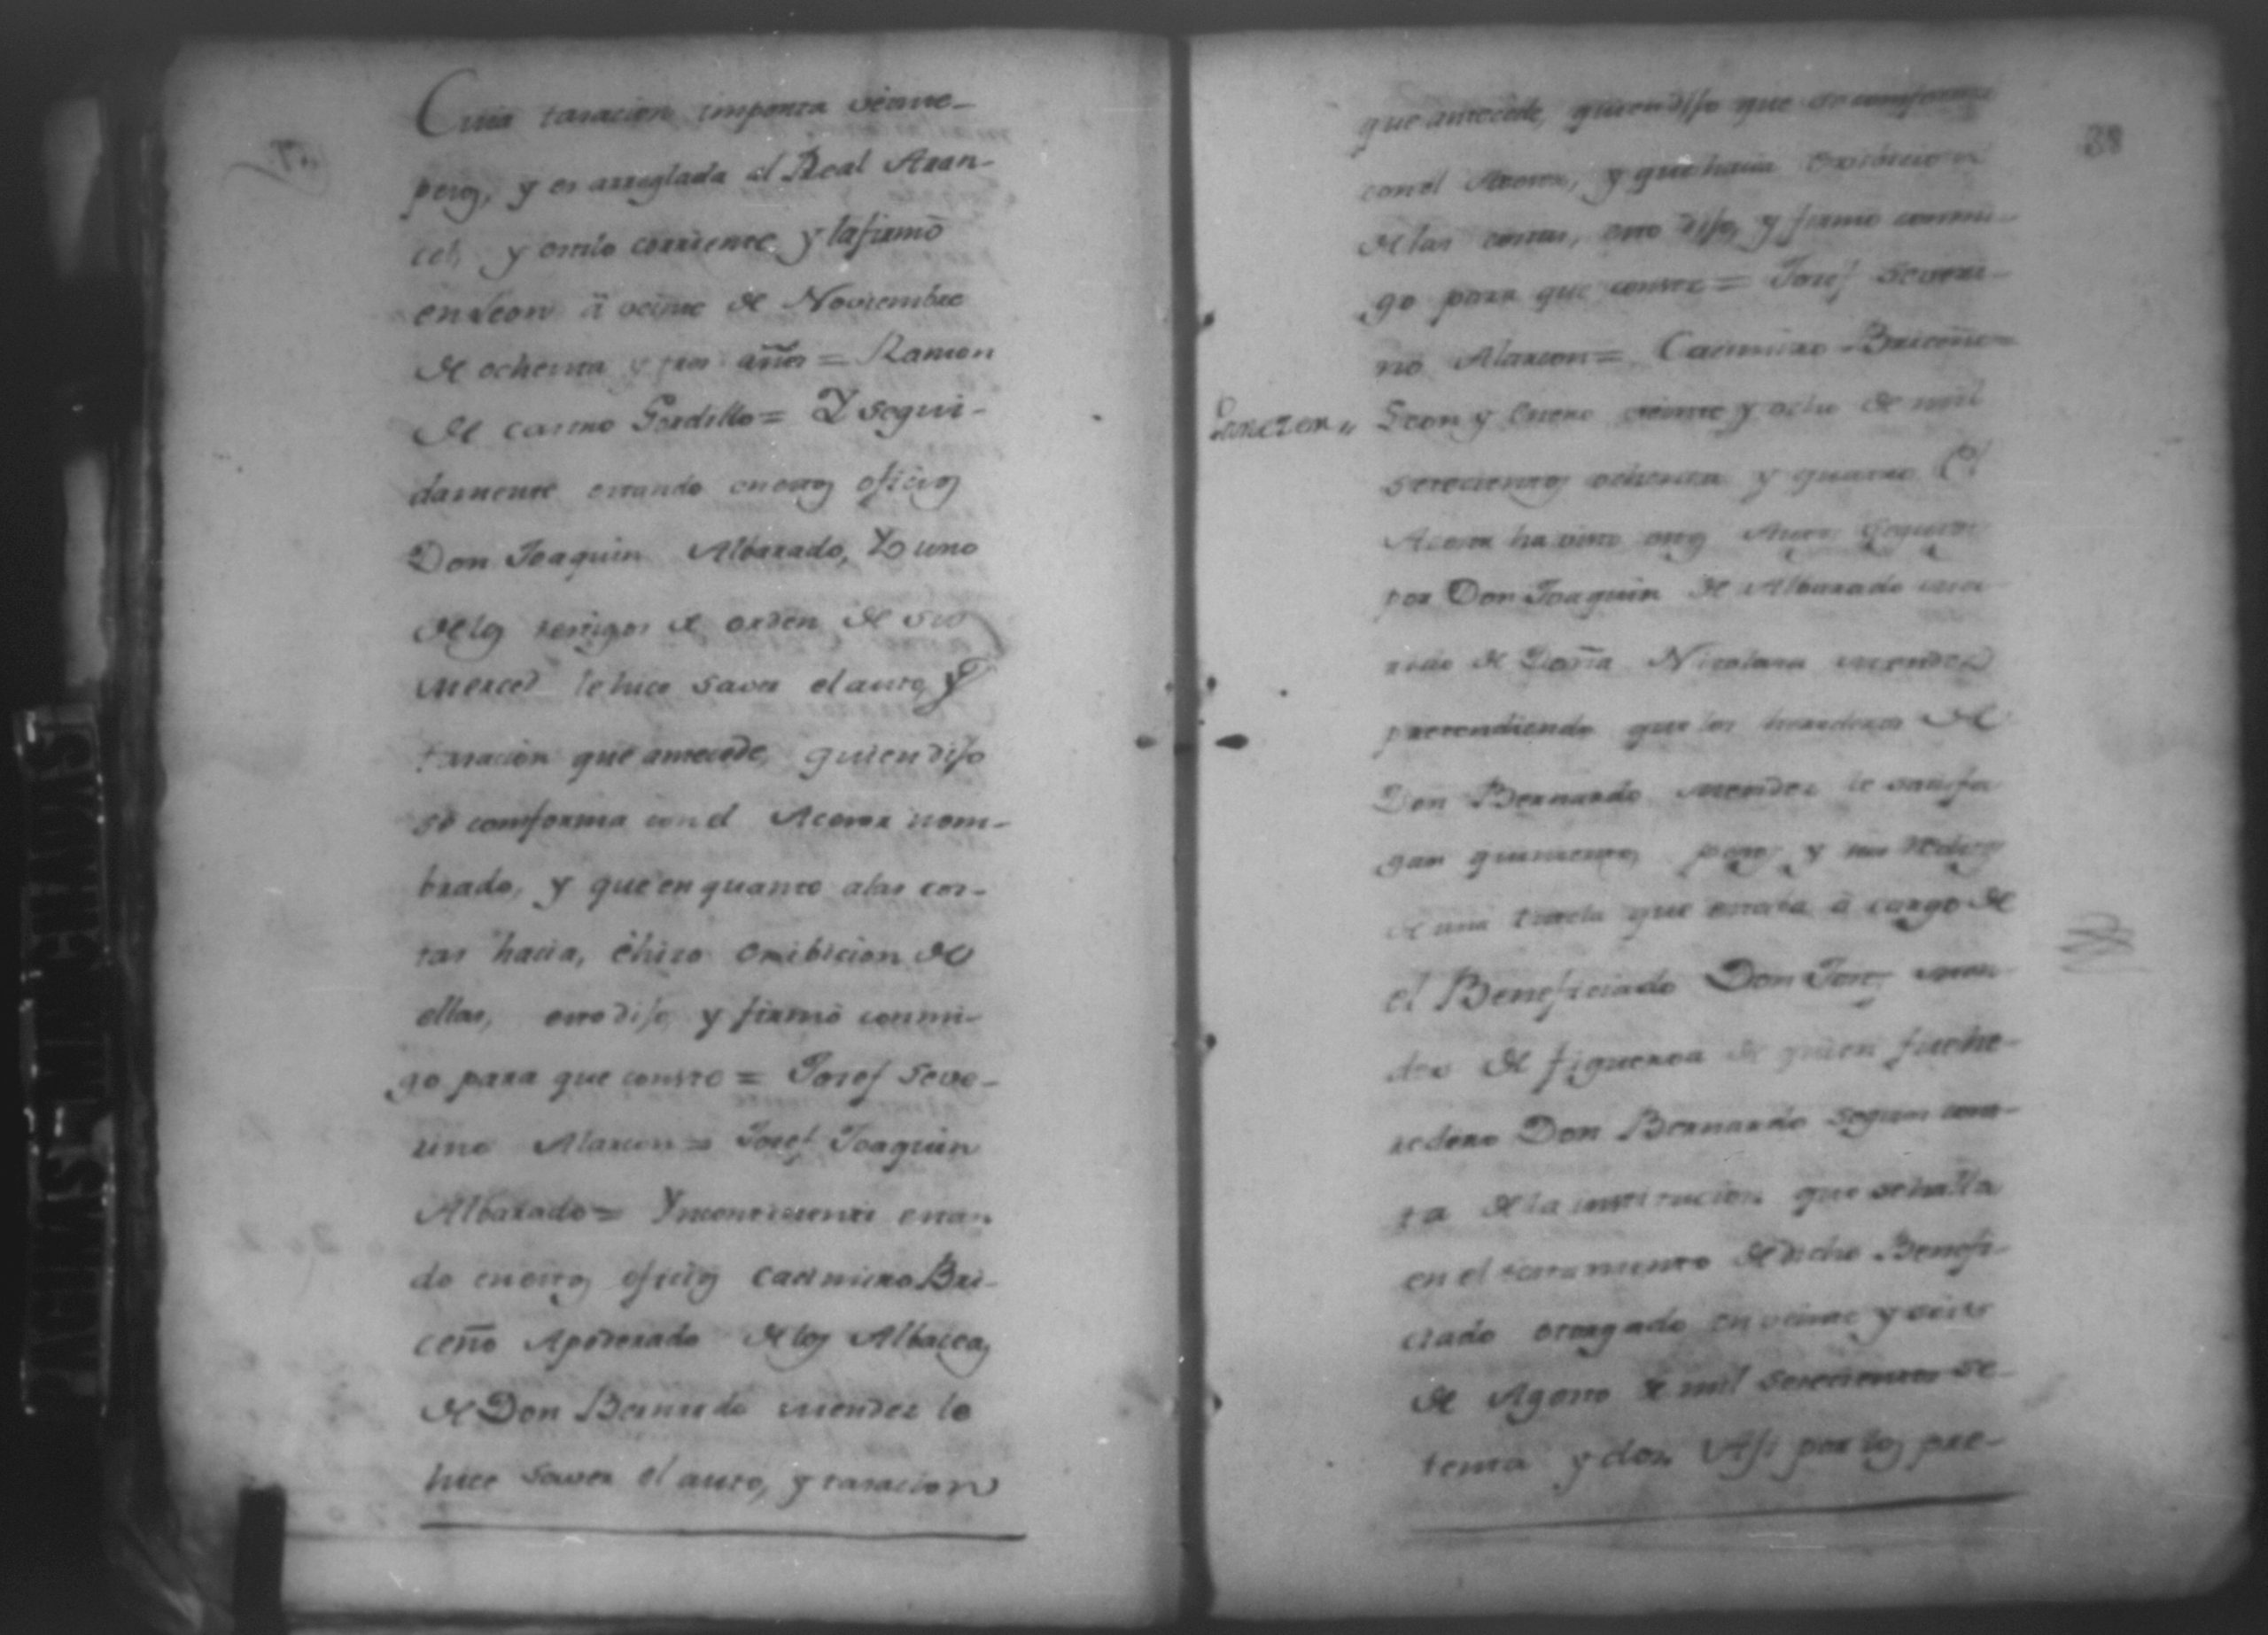 Cuia tasacion importa veinte
pesos, y es arreglada al Real Aran-
cel, y estilo corriente y la firmó
en Leon à veinte de Noviembre
de ochenta y tres años = Ramon
de casmo Gordillo = Y segui-
damente estando en estos oficios
Don Joaquin Albarado, Yo uno
de los testigos de orden de su
merced le hice saver el auto, y
tasacion que antecede, quien dijo
se comforma con el Acesor nom-
brado, y que en quanto a las cos-
tas hacia, é hizo exsibicion de
ellas, esto dijo, y firmó conmi-
go para que conste = Josef Seve-
rino Alarcon = Josef Joaquin
Albarado = Yncontinenti estan-
do en estos oficios Casimiro Bri-
ceño Apoderado de los Albaceas
de Don Bernardo Mendez le
hice saver el auto, y tasacion
38
que antecede, quien dijo que se comforma
con el Acesor, y que hacia exsibicion
de las costas, esto dijo, y firmó conmi-
go para que conste = Josef Severi-
no Alarcon = Casimiro Briceño =
Leon y Enero veinte y ocho de mil
setecientos ochenta y quatro El
Acesor ha visto estos Autos seguidos
por Don Joaquin de Albarado ma-
rido de Doña Nicolasa Mendez
pretendiendo que los herederos de
Don Bernardo Mendez le satisfa-
gan quinientos pesos y sus reditos
de una que estaba à cargo de
el Beneficiado Don Josef Men-
dez de Figueroa de quien fue he-
redero Don Bernardo segun cons-
ta de la institucion que se halla
en el testamento de dicho Benefi-
ciado otorgado en veinte y seis
de Agosto de mil setecientos se-
tenta y dos. Asi por los pre-